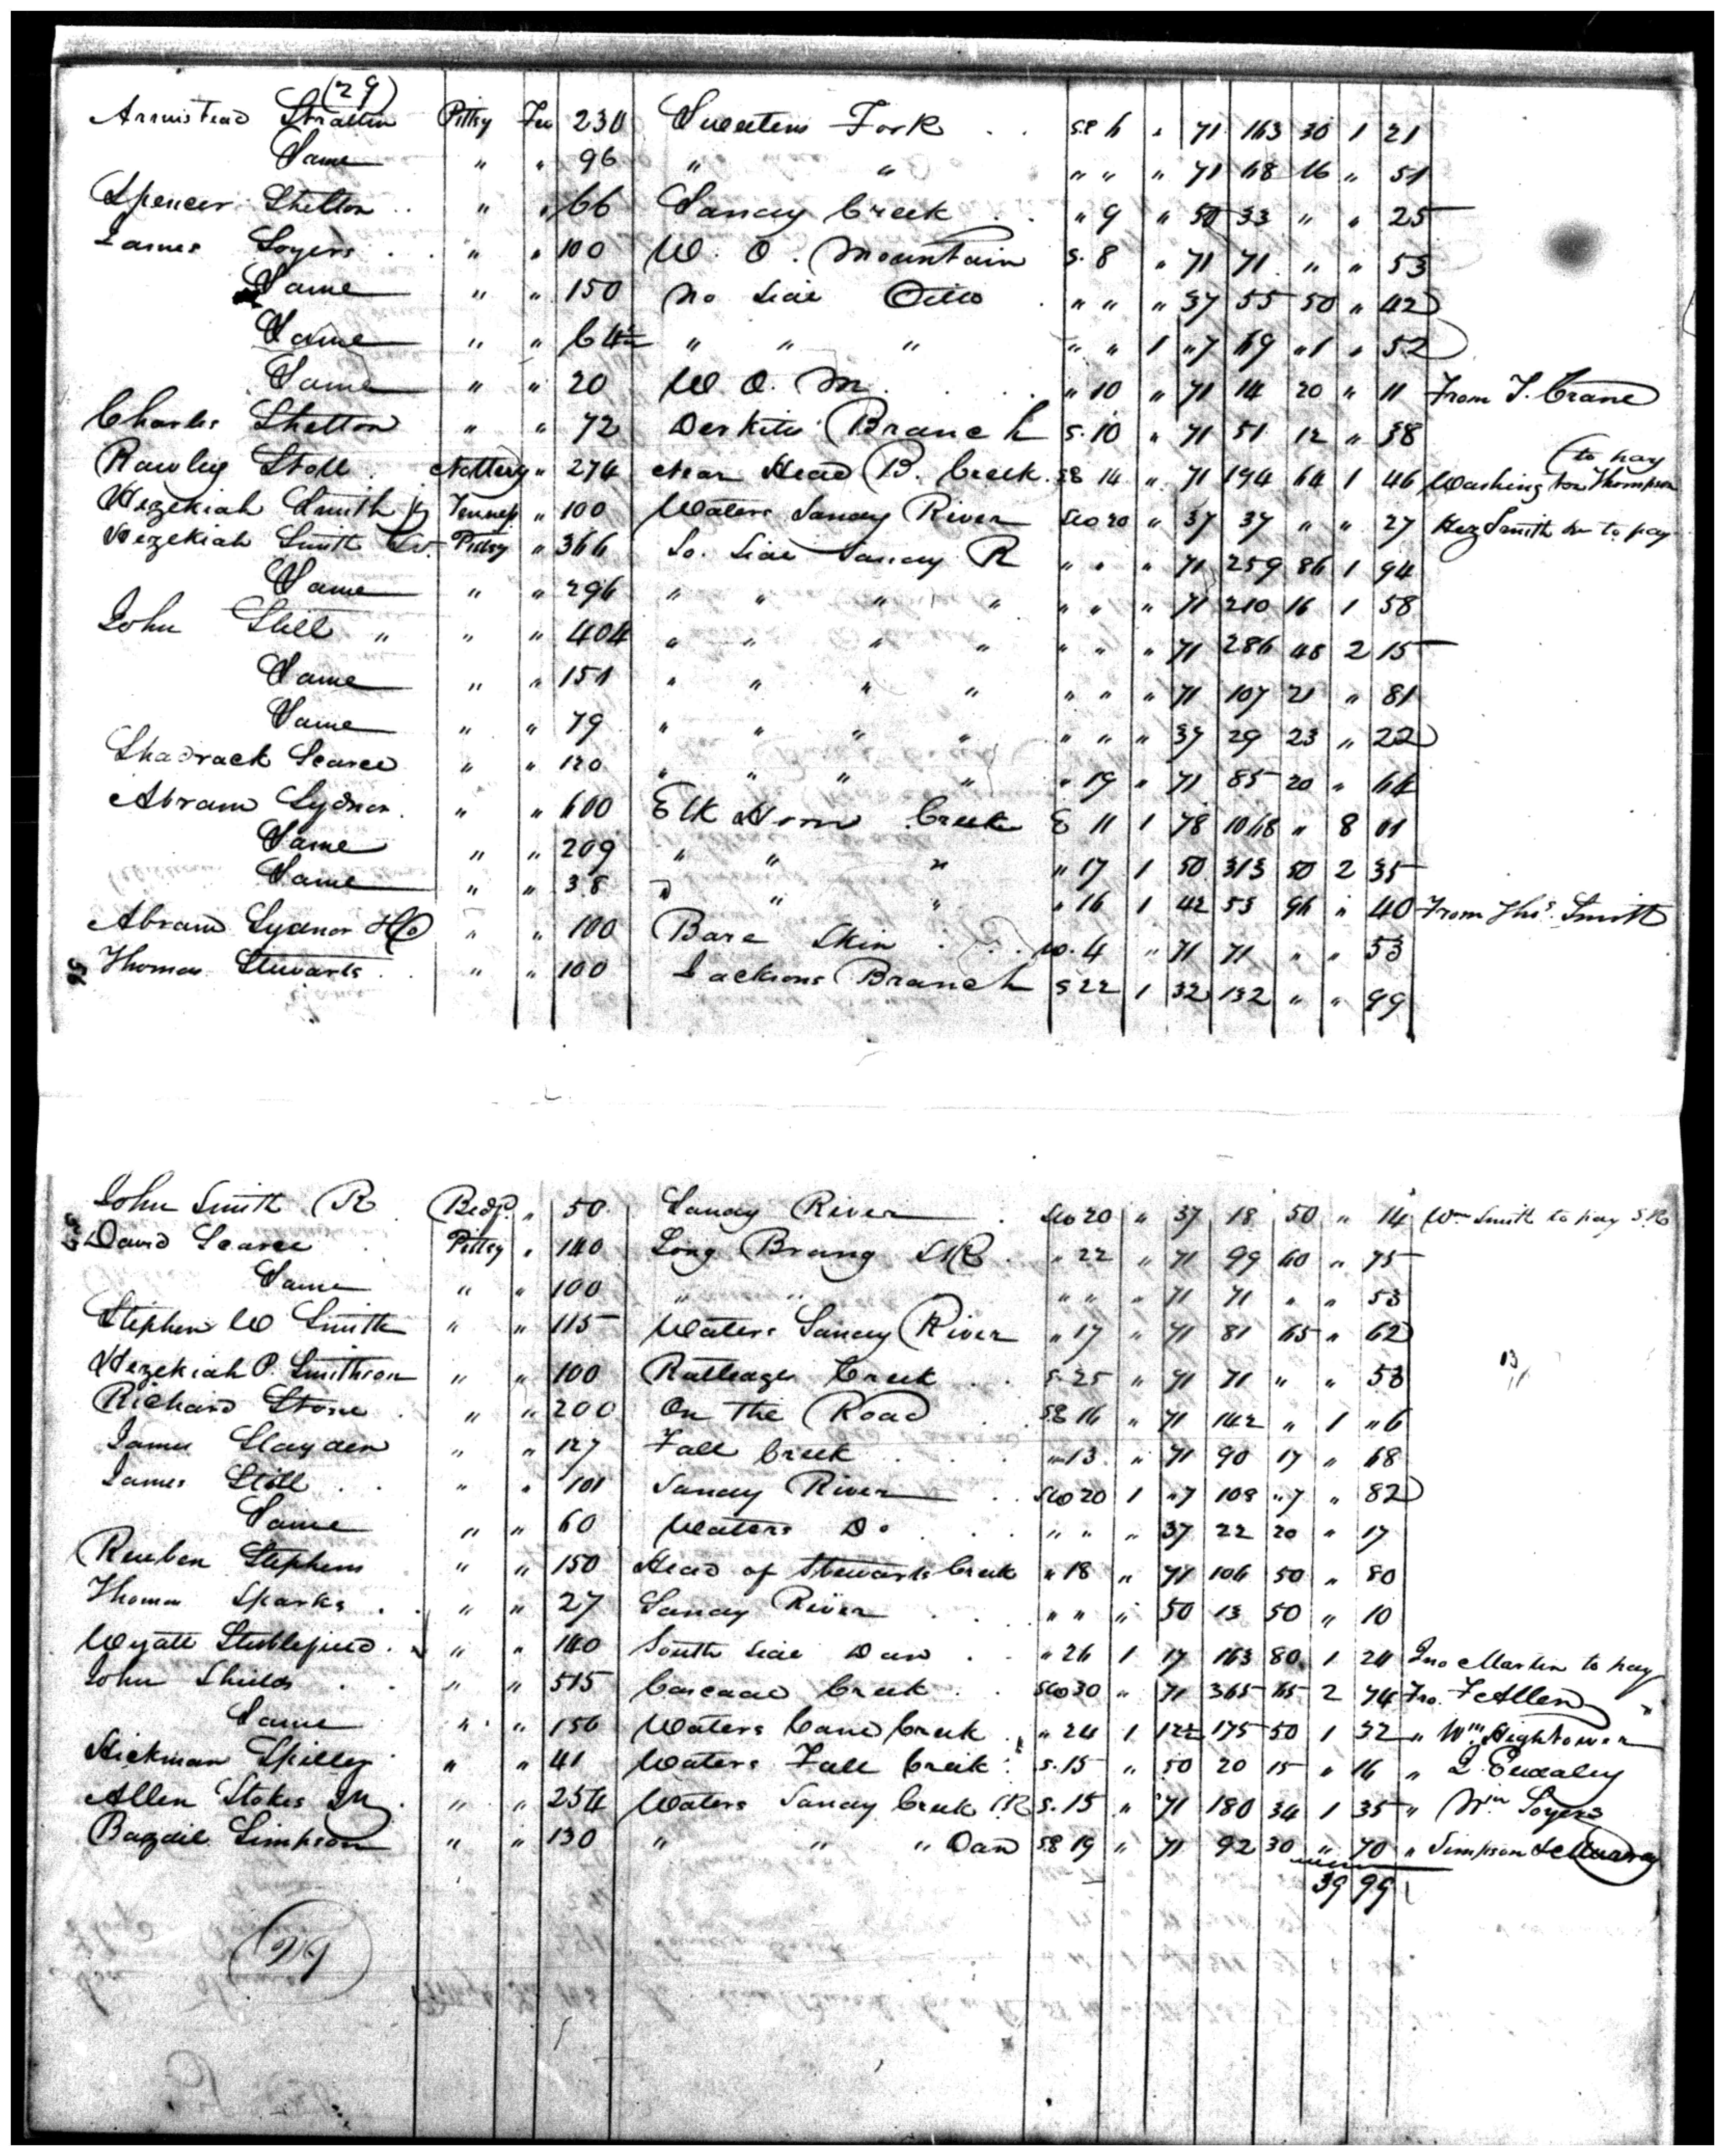 (29)
Armistead Stratton Pittsy Fee 230 Sweetens Fork . . S.E 6 " 71 163 30 1 21
Same " " 96 " " " " " 71 68 16 " 51
Spencer Shelton . . " " 66 Sandy Creek . . " 9 " 50 33 " " 25
James Soyers . . " " 100 W. O. Mountain S. 8 " 71 71 " " 53
Same " " 150 No Side Ditto . " " " 37 55 50 " 42
Same " " 64 " " " " " 1 "7 69 "1 " 52
Same " " 20 W O. M. . . . " 10 " 71 14 20 " 11 From J. Crane
Charles Shelton " " 72 Branch S. 10 " 71 51 12 " 38
(to pay
Rawley Stott . Nottery " 274 Near Head B. Creek . SE 14 " 71 194 64 1 46 Washington Thompson
Hezekiah Smith Jr Tenness " 100 Waters Sandy River SW 20 " 37 37 " " 27 Hez Smith Sr to pay
Hezekiah Smith Sr. Pittsy " 366 So. Side Sandy R " " " 71 259 86 1 94
Same " " 296 " " " " " " " 71 210 16 1 58
John Still " " " 404 " " " " " " " 71 286 48 2 15
Same " " 151 " " " " " " " 71 107 21 " 81
Same " " 79 " " " " " " " 37 29 23 " 22
Shadrack Scarce " " 120 " " " " " 19 " 71 85 20 " 64
Abram Sydnor . " " 600 Elk Horn Creek E 11 1 78 1068 " 8 01
Same " " 209 " " " " 17 1 50 313 50 2 35
Same " " 38 " " " " 16 1 42 53 96 " 40 From Thos. Smith
Abram Sydnor & Co " " 100 Bare Skin . . . W. 4 " 71 71 " " 53
56 Thomas Stewarts . . " " 100 Jacksons Branch S 22 1 32 132 " " 99
John Smith R Bedf. " 50 Sandy River . SW 20 " 37 18 50 " 14 Wm Smith to pay S.R
David Scarce . Pittsy " 140 Long Brang SR . " 22 " 71 99 40 " 75
Same " " 100 " " " " " 71 71 " " 53
Stephen W Smith " " 115 Waters Sandy River " 17 " 71 81 65 " 62
Hezekiah P. Smithson " " 100 Rutledges Creek . . S. 25 " 71 71 " " 53
Richard Stone . " " 200 On the Road . SE 16 " 71 142 " 1 "6
James Slayden " " 127 Fall Creek . . . " 13 " 71 90 17 " 68
James Still . . " " 101 Sandy River . . SW 20 1 "7 108 "7 " 82
Same " " 60 Waters Do . . . " " " 37 22 20 " 17
Reuben Stephens " " 150 Head of Stewarts Creek " 18 " 71 106 50 " 80
Thomas Sparks . . " " 27 Sandy River . . . " " " 50 13 50 " 10
Wyatt Stubblefield . " " 140 South Side Dan . . " 26 1 17 163 80 1 24 Jno Martin to pay
John Shields . . " " 515 Cascade Creek . . SW 30 " 71 365 65 2 74 Fro. F Allen "
Same " " 156 Waters Cane Creek . " 24 1 12½ 175 50 1 32 " Wm Hightower
Hickman Spilley . " " 41 Waters Fall Creek . S. 15 " 50 20 15 " 16 " J. Eudaley
Allen Stokes Jr . " " 254 Waters Sandy Creek B.R S. 15 " 71 180 34 1 35 " Wm Soyers
Simpson " " 130 " " " Dan SE 19 " 71 92 30 " 70 " Simpson
39 99
(29)